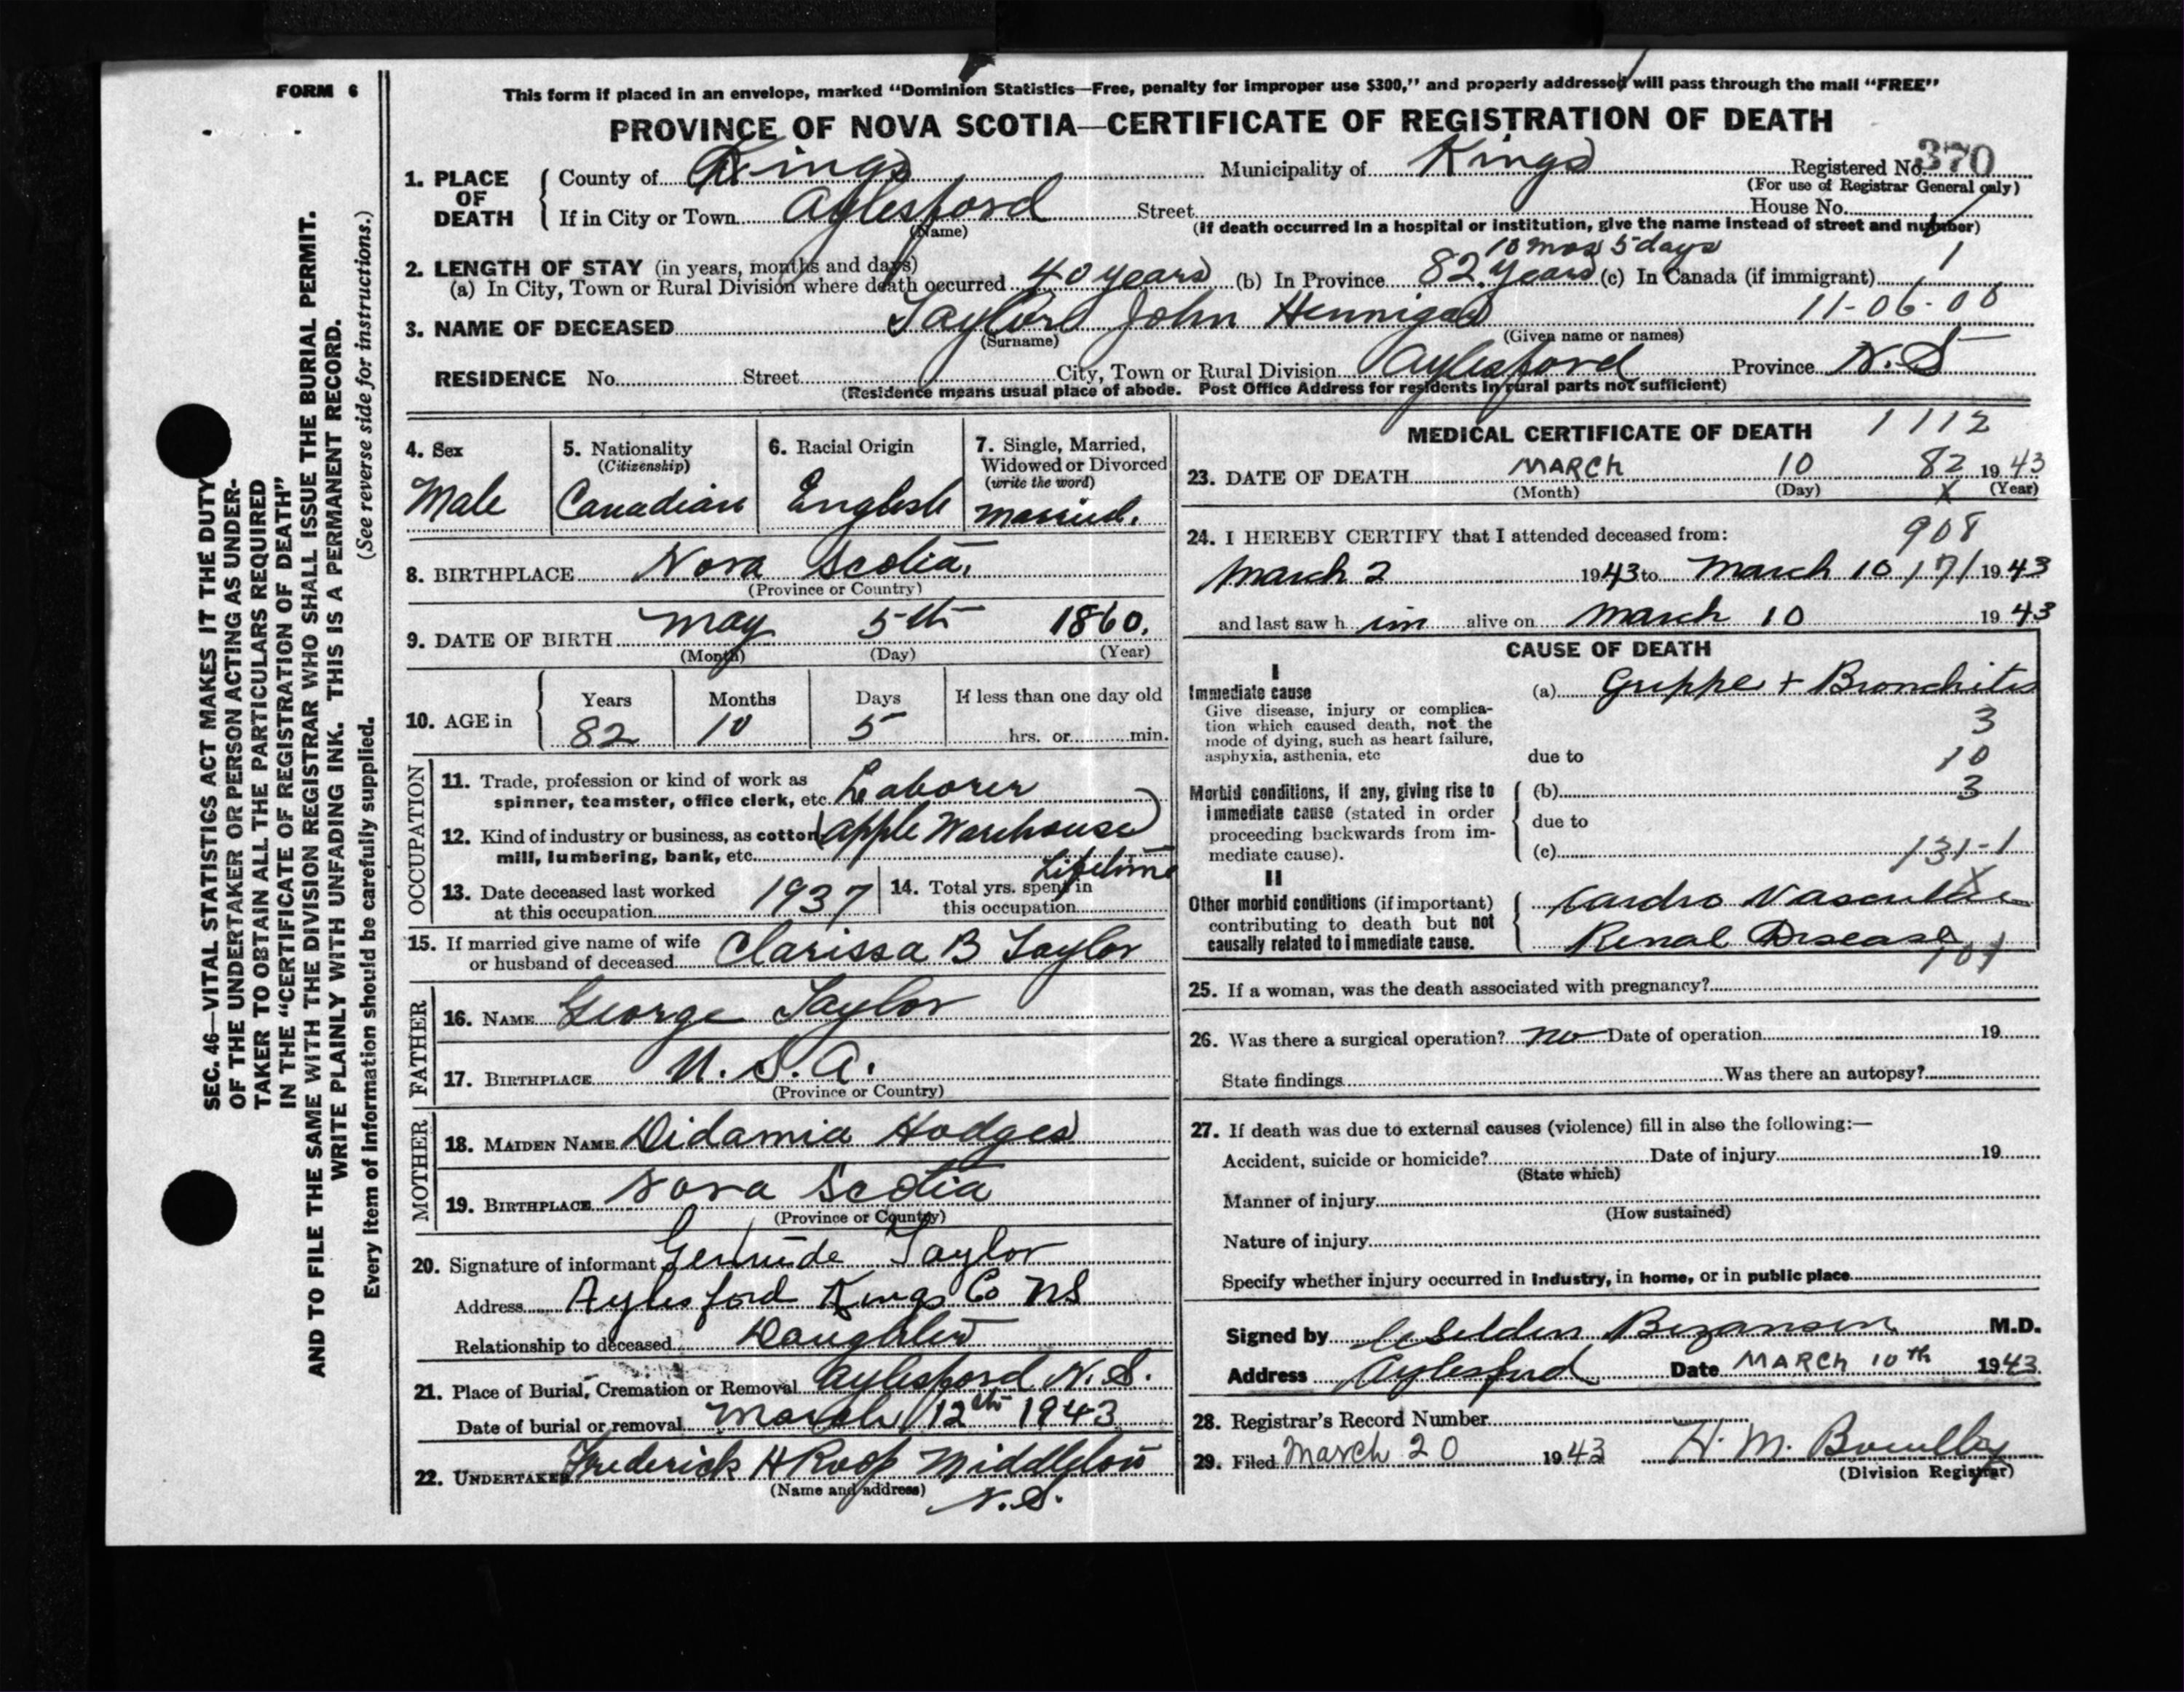 FORM 6
This form if placed in an envelope, marked "Dominion Statistics—Free, penalty for improper use $300," and properly addressed will pass through the mail "FREE"
PROVINCE OF NOVA SCOTIA—CERTIFICATE OF REGISTRATION OF DEATH
1. PLACE OF DEATH County of Kings Municipality of Kings Registered No. 370
(For use of Registrar General only)
If in City or Town Aylesford Street House No.
(Name) (If death occurred in a hospital or institution, give the name instead of street and number)
10 mos 5 days
2. LENGTH OF STAY (in years, months and days)
(a) In City, Town or Rural Division where death occurred 40 years (b) In Province 82 years (c) In Canada (if immigrant) 1
11-06-00
3. NAME OF DECEASED Taylor John Hennigar
(Surname) (Given name or names)
RESIDENCE No. Street City, Town or Rural Division Aylesford Province N.S
(Residence means usual place of abode. Post Office Address for residents in rural parts not sufficient)
4. Sex
Male
5. Nationality
(Citizenship)
Canadian
6. Racial Origin
English
7. Single, Married,
Widowed or Divorced
(write the word)
Married.
8. BIRTHPLACE Nova Scotia.
(Province or Country)
9. DATE OF BIRTH May 5th 1860.
(Month) (Day) (Year)
10. AGE in Years Months Days If less than one day old
82 10 5 hrs. or min.
OCCUPATION
11. Trade, profession or kind of work as
spinner, teamster, office clerk, etc. Laborer
12. Kind of industry or business, as cotton
mill, lumbering, bank, etc. (Apple Warehouse)
13. Date deceased last worked
at this occupation 1937
14. Total yrs. spent in
this occupation Lifetime
15. If married give name of wife
or husband of deceased Clarissa B Taylor
FATHER
16. NAME George Taylor
17. BIRTHPLACE U.S.A.
(Province or Country)
MOTHER
18. MAIDEN NAME Didamia Hodges
19. BIRTHPLACE Nova Scotia
(Province or Country)
20. Signature of informant Gertrude Taylor
Address Aylesford Kings Co NS
Relationship to deceased Daughter
21. Place of Burial, Cremation or Removal Aylesford N.S.
Date of burial or removal March 12th 1943
22. UNDERTAKER Frederick H Roop Middleton
(Name and address) N.S.
MEDICAL CERTIFICATE OF DEATH 1112
23. DATE OF DEATH MARCH 10 82 1943
(Month) (Day) X (Year)
24. I HEREBY CERTIFY that I attended deceased from: 908
March 2 1943 to March 10 171 1943
and last saw h im alive on March 10 1943
CAUSE OF DEATH
I
Immediate cause
Give disease, injury or complica-
tion which caused death, not the
mode of dying, such as heart failure,
asphyxia, asthenia, etc
(a) Grippe + Bronchitis
3
due to 10
Morbid conditions, if any, giving rise to
immediate cause (stated in order
proceeding backwards from im-
mediate cause).
(b) 3
due to
(c) 131-1
X
II
Other morbid conditions (if important)
contributing to death but not
causally related to immediate cause.
Cardro Vascular
Renal Disease
101
25. If a woman, was the death associated with pregnancy?
26. Was there a surgical operation? No Date of operation 19
State findings Was there an autopsy?
27. If death was due to external causes (violence) fill in also the following:—
Accident, suicide or homicide? Date of injury 19
(State which)
Manner of injury
(How sustained)
Nature of injury
Specify whether injury occurred in industry, in home, or in public place
Signed by Selden Bezanson M.D.
Address Aylesford Date MARCH 10th 1943
28. Registrar's Record Number
29. Filed March 20 1943 H. M.
(Division Registrar)
SEC. 46—VITAL STATISTICS ACT MAKES IT THE DUTY
OF THE UNDERTAKER OR PERSON ACTING AS UNDER-
TAKER TO OBTAIN ALL THE PARTICULARS REQUIRED
IN THE "CERTIFICATE OF REGISTRATION OF DEATH"
AND TO FILE THE SAME WITH THE DIVISION REGISTRAR WHO SHALL ISSUE THE BURIAL PERMIT.
WRITE PLAINLY WITH UNFADING INK. THIS IS A PERMANENT RECORD.
(See reverse side for instructions.)
Every item of information should be carefully supplied.